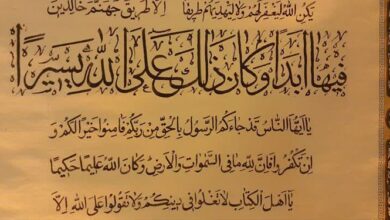 يَكُنِ اللهُ لِيَغْفِرَ لَهُمْ وَلَا لِيَهْدِيَهُمْ طَرِيقًا إِلَّا طَرِيقَ جَهَنَّمَ خَالِدِينَ
فِيهَا أَبَدًا وَكَانَ ذَلِكَ عَلَى اللهِ يَسِيرًا
يَا أَيُّهَا النَّاسُ قَدْ جَاءَكُمُ الرَّسُولُ بِالْحَقِّ مِنْ رَبِّكُمْ فَآمِنُوا خَيْرًا لَكُمْ وَ
اِنْ تَكْفُرُوا فَإِنَّ لِلّٰهِ مَا فِي السَّمٰوَاتِ وَالْأَرْضِ وَكَانَ اللهُ عَلِيمًا حَكِيمًا
يَا أَهْلَ الْكِتَابِ لَا تَغْلُوا فِي دِينِكُمْ وَلَا تَقُولُوا عَلَى اللهِ إِلَّا